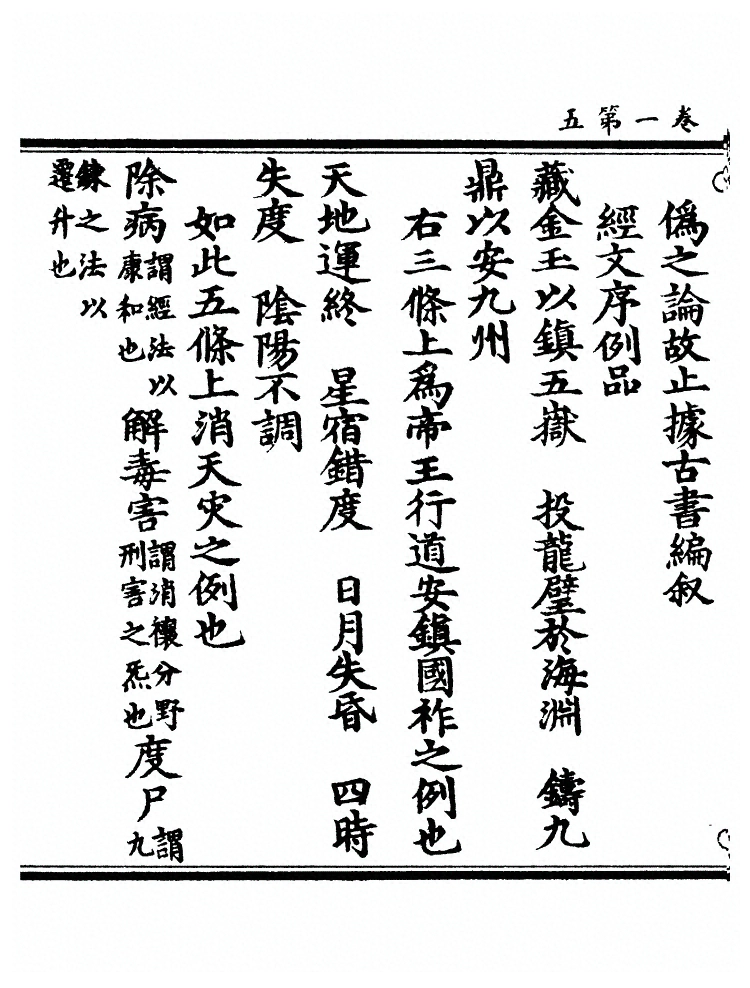 卷一第五
僞之論故止據古書編叙
經文序例品
藏金玉以鎮五嶽　投龍璧於海淵　鑄九
鼎以安九州
右三條上爲帝王行道安鎮國祚之例也
天地運終　星宿錯度　日月失昏　四時
失度　陰陽不調
如此五條上消天灾之例也
除病謂經法以康和也解毒害謂消禳分野刑害之炁也度尸謂九
鍊之法以遷升也